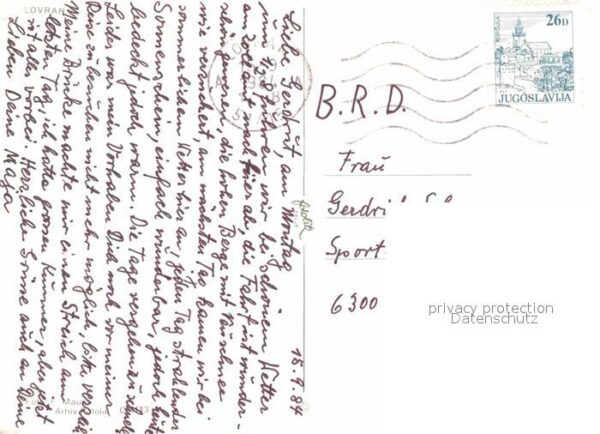 LOVRAN
18.9.84
Liebe Gerdrut, am Montag
um 13 h fuhren wir bei schönem Wetter
am Zoll ab, die Fahrt ist wunder-
schön gewesen, die hohen Berge mit Neuschnee
wie verzuckert, am nächsten Tag kamen wir bei
sommerlichen Wetter hier an, jeden Tag strahlender
Sonnenschein, einfach wunderbar, jedoch heute
bedeckt jedoch warm. Die Tage vergehen zu schnell
Leider war mein Vorhaben Dich noch vor meiner
Reise zu besuchen nicht mehr möglich, bitte verzeih
Meine Brücke machte mir einen Streich am
letzten Tag, ich hatte grossen Kummer, aber jetzt
ist alles vorbei. Herzliche Grüsse auch an Deine
Lieben Deine Maga
B.R.D.
Frau
Sport
6300
26D
JUGOSLAVIJA
privacy protection
Datenschutz